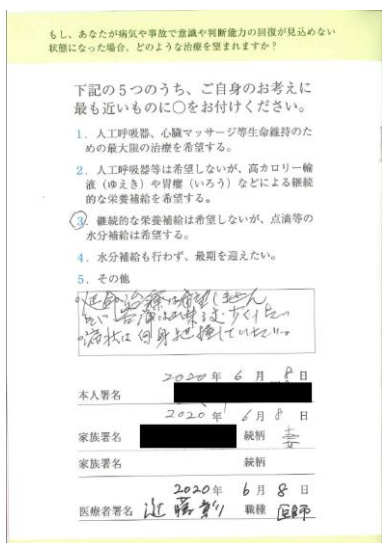 もし、あなたが病気や事故で意識や判断能力の回復が見込めない
状態になった場合、どのような治療を望まれますか?
下記の5つのうち、ご自身のお考えに
最も近いものに○をお付けください。
1. 人工呼吸器、心臓マッサージ等生命維持のた
めの最大限の治療を希望する。
2. 人工呼吸器等は希望しないが、高カロリー輸
液(ゆえき)や胃瘻(いろう)などによる継続
的な栄養補給を希望する。
3. 継続的な栄養補給は希望しないが、点滴等の
水分補給は希望する。
4. 水分補給も行わず、最期を迎えたい。
5. その他
・延命治療は希望しません
病状は自身把握していたい。
2020年 6月 8日
本人署名
2020年 6月 8日
家族署名 続柄 妻
家族署名 続柄
2020年 6月 8日
医療者署名 近藤 職種 医師